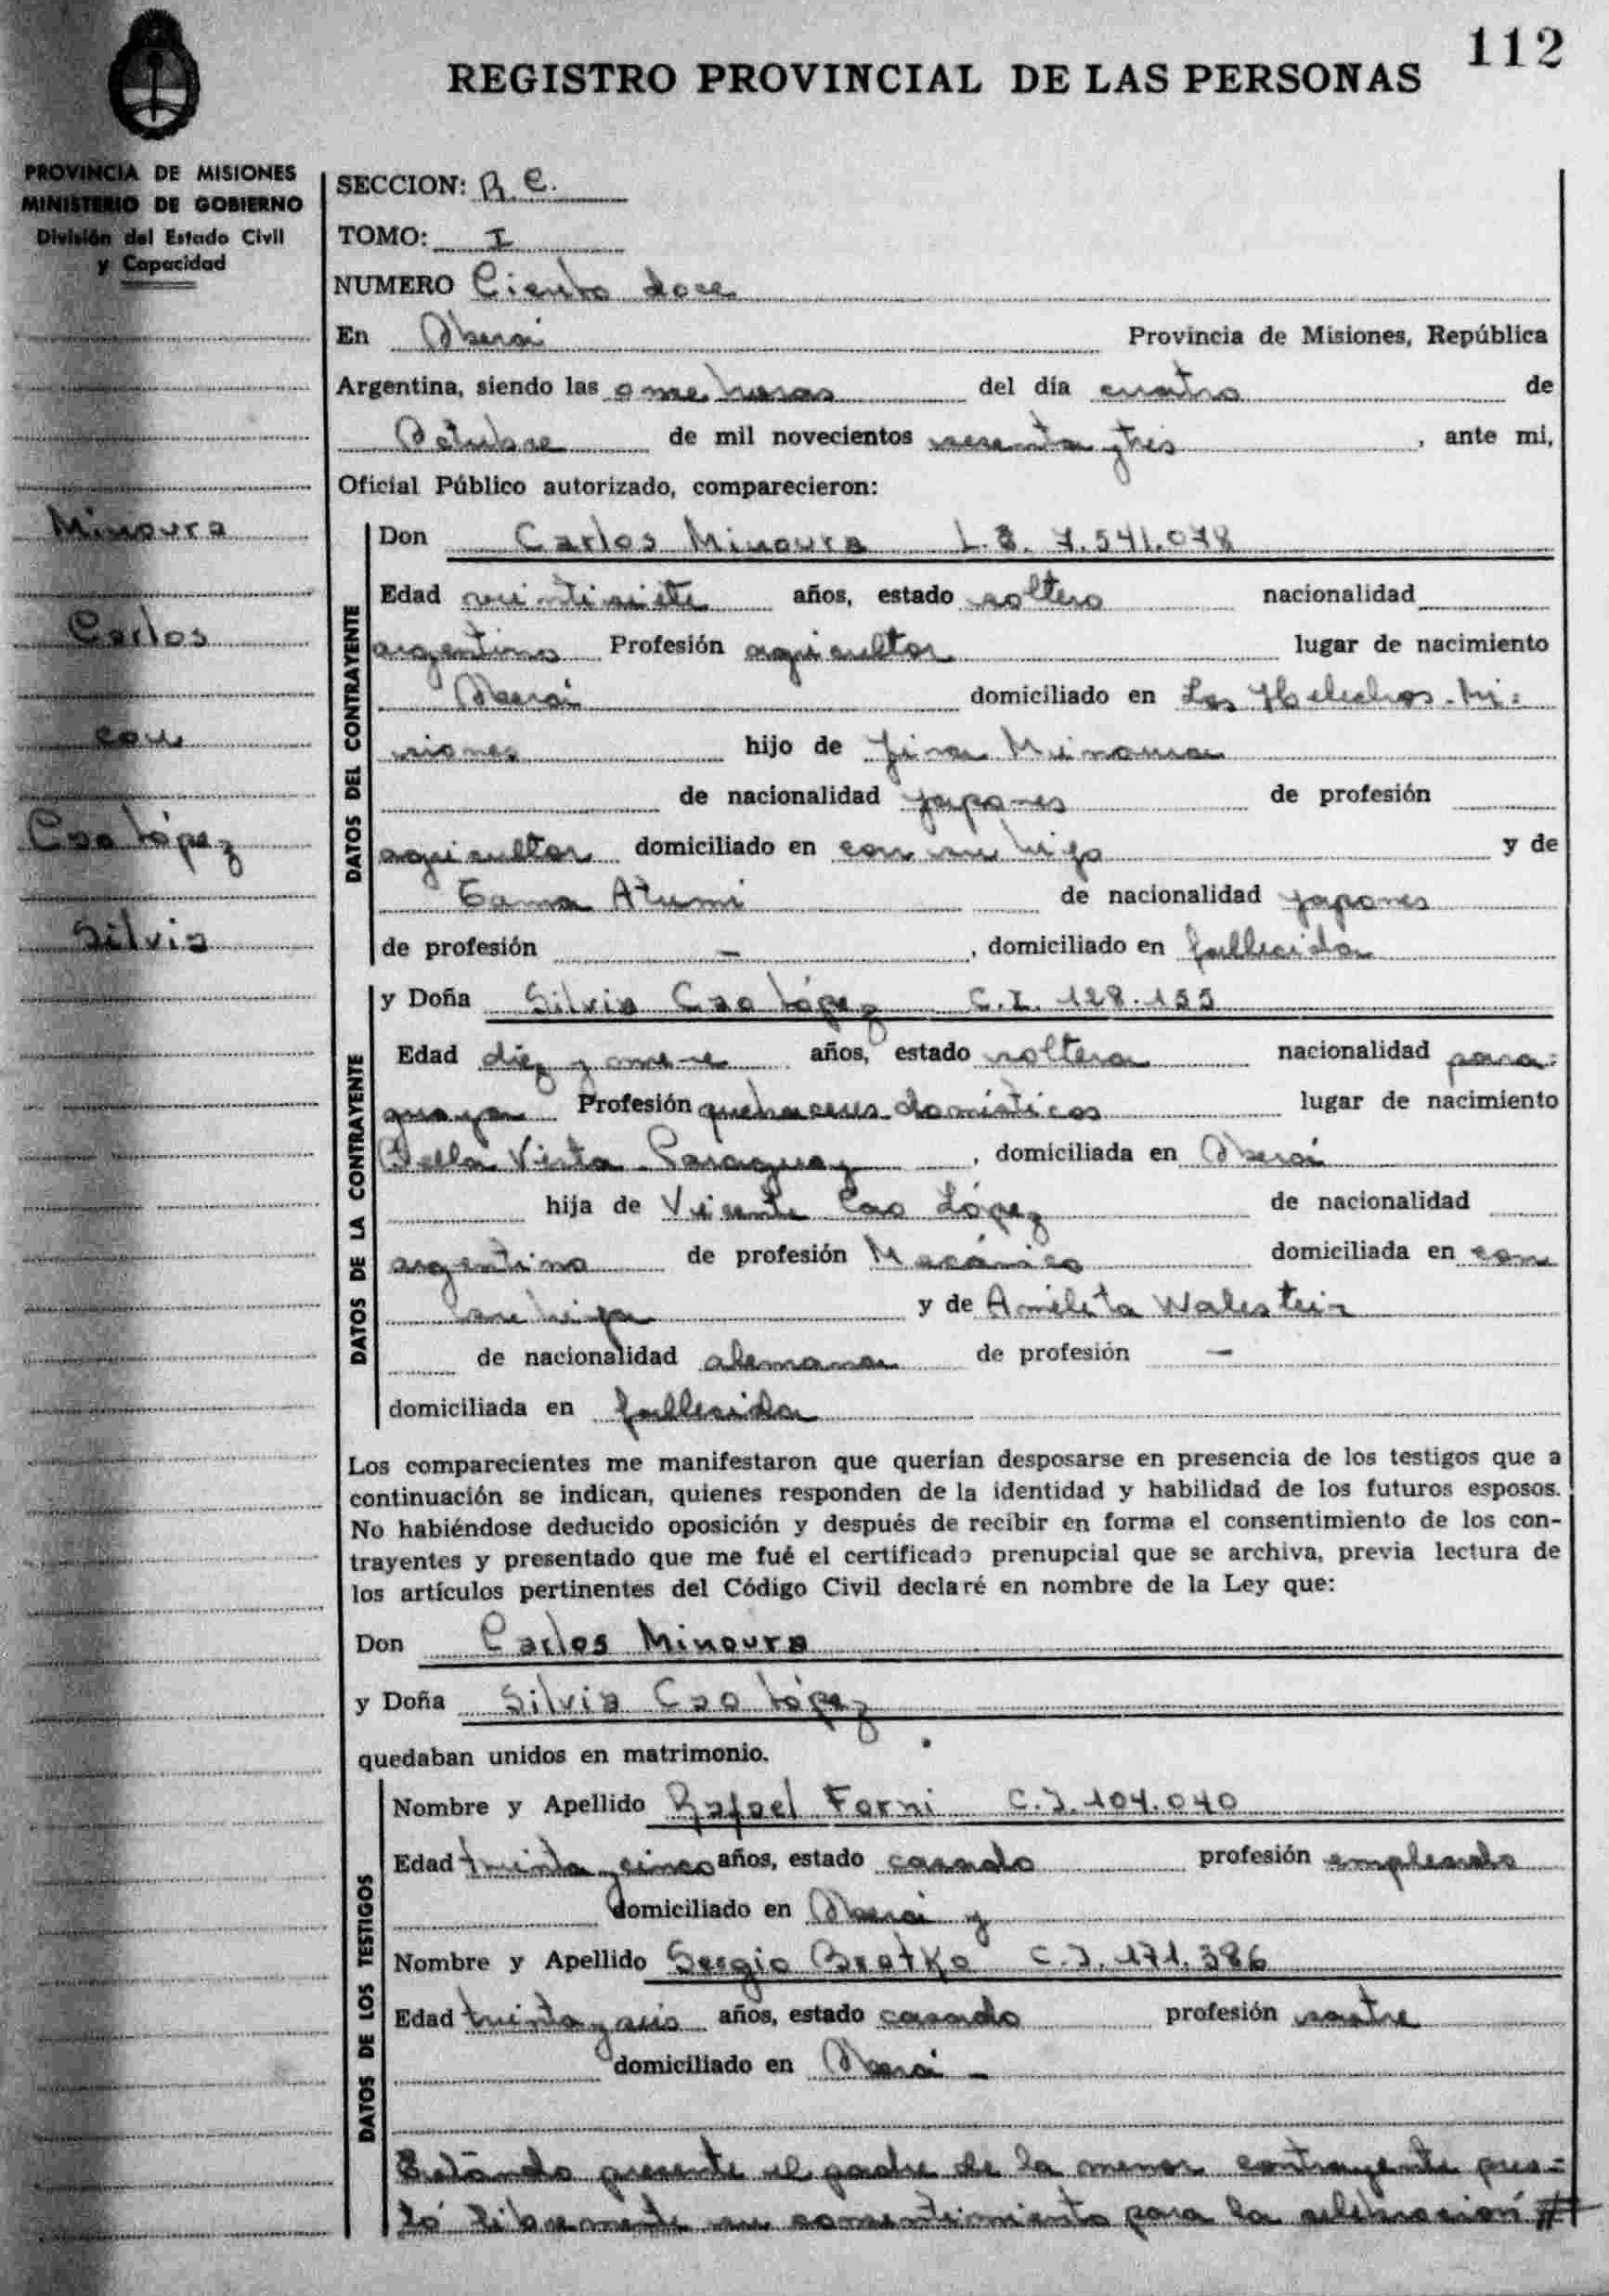 112
REGISTRO PROVINCIAL DE LAS PERSONAS
PROVINCIA DE MISIONES
MINISTERIO DE GOBIERNO
División del Estado Civil
y Capacidad
Minoura
Carlos
con
Cao López
Silvia
SECCION: R. C.
TOMO: I
NUMERO Ciento doce
En Oberá Provincia de Misiones, República
Argentina, siendo las once horas del día cuatro de
Octubre de mil novecientos sesenta y tres, ante mi,
Oficial Público autorizado, comparecieron:
DATOS DEL CONTRAYENTE
Don Carlos Minoura L.E. 7.541.078
Edad veintisiete años, estado soltero nacionalidad
argentino Profesión agricultor lugar de nacimiento
Oberá domiciliado en Los Helechos-Mi-
siones hijo de Minoura
de nacionalidad japones de profesión
agricultor domiciliado en con su hijo y de
Tama Atumi de nacionalidad japones
de profesión -, domiciliado en fallecida
DATOS DE LA CONTRAYENTE
y Doña Silvia Cao López C.I. 128.155
Edad diez y nueve años, estado soltera nacionalidad para-
guaya Profesión quehaceres domésticos lugar de nacimiento
Bella Vista Paraguay, domiciliada en Oberá
hija de Vicente Cao López de nacionalidad
argentino de profesión Mecánico domiciliada en con
su hija y de Amelita Walestein
de nacionalidad alemana de profesión -
domiciliada en fallecida
Los comparecientes me manifestaron que querían desposarse en presencia de los testigos que a
continuación se indican, quienes responden de la identidad y habilidad de los futuros esposos.
No habiéndose deducido oposición y después de recibir en forma el consentimiento de los con-
trayentes y presentado que me fué el certificado prenupcial que se archiva, previa lectura de
los artículos pertinentes del Código Civil declaré en nombre de la Ley que:
Don Carlos Minoura
y Doña Silvia Cao López
quedaban unidos en matrimonio.
DATOS DE LOS TESTIGOS
Nombre y Apellido Rafael Forni C.I. 104.040
Edad treinta y cinco años, estado casado profesión empleado
domiciliado en Oberá y
Nombre y Apellido Sergio Bratko C.I. 171.386
Edad treinta y seis años, estado casado profesión sastre
domiciliado en Oberá -
Estándo presente el padre de la menor contrayente pres-
tó libremente su consentimiento para la celebración #